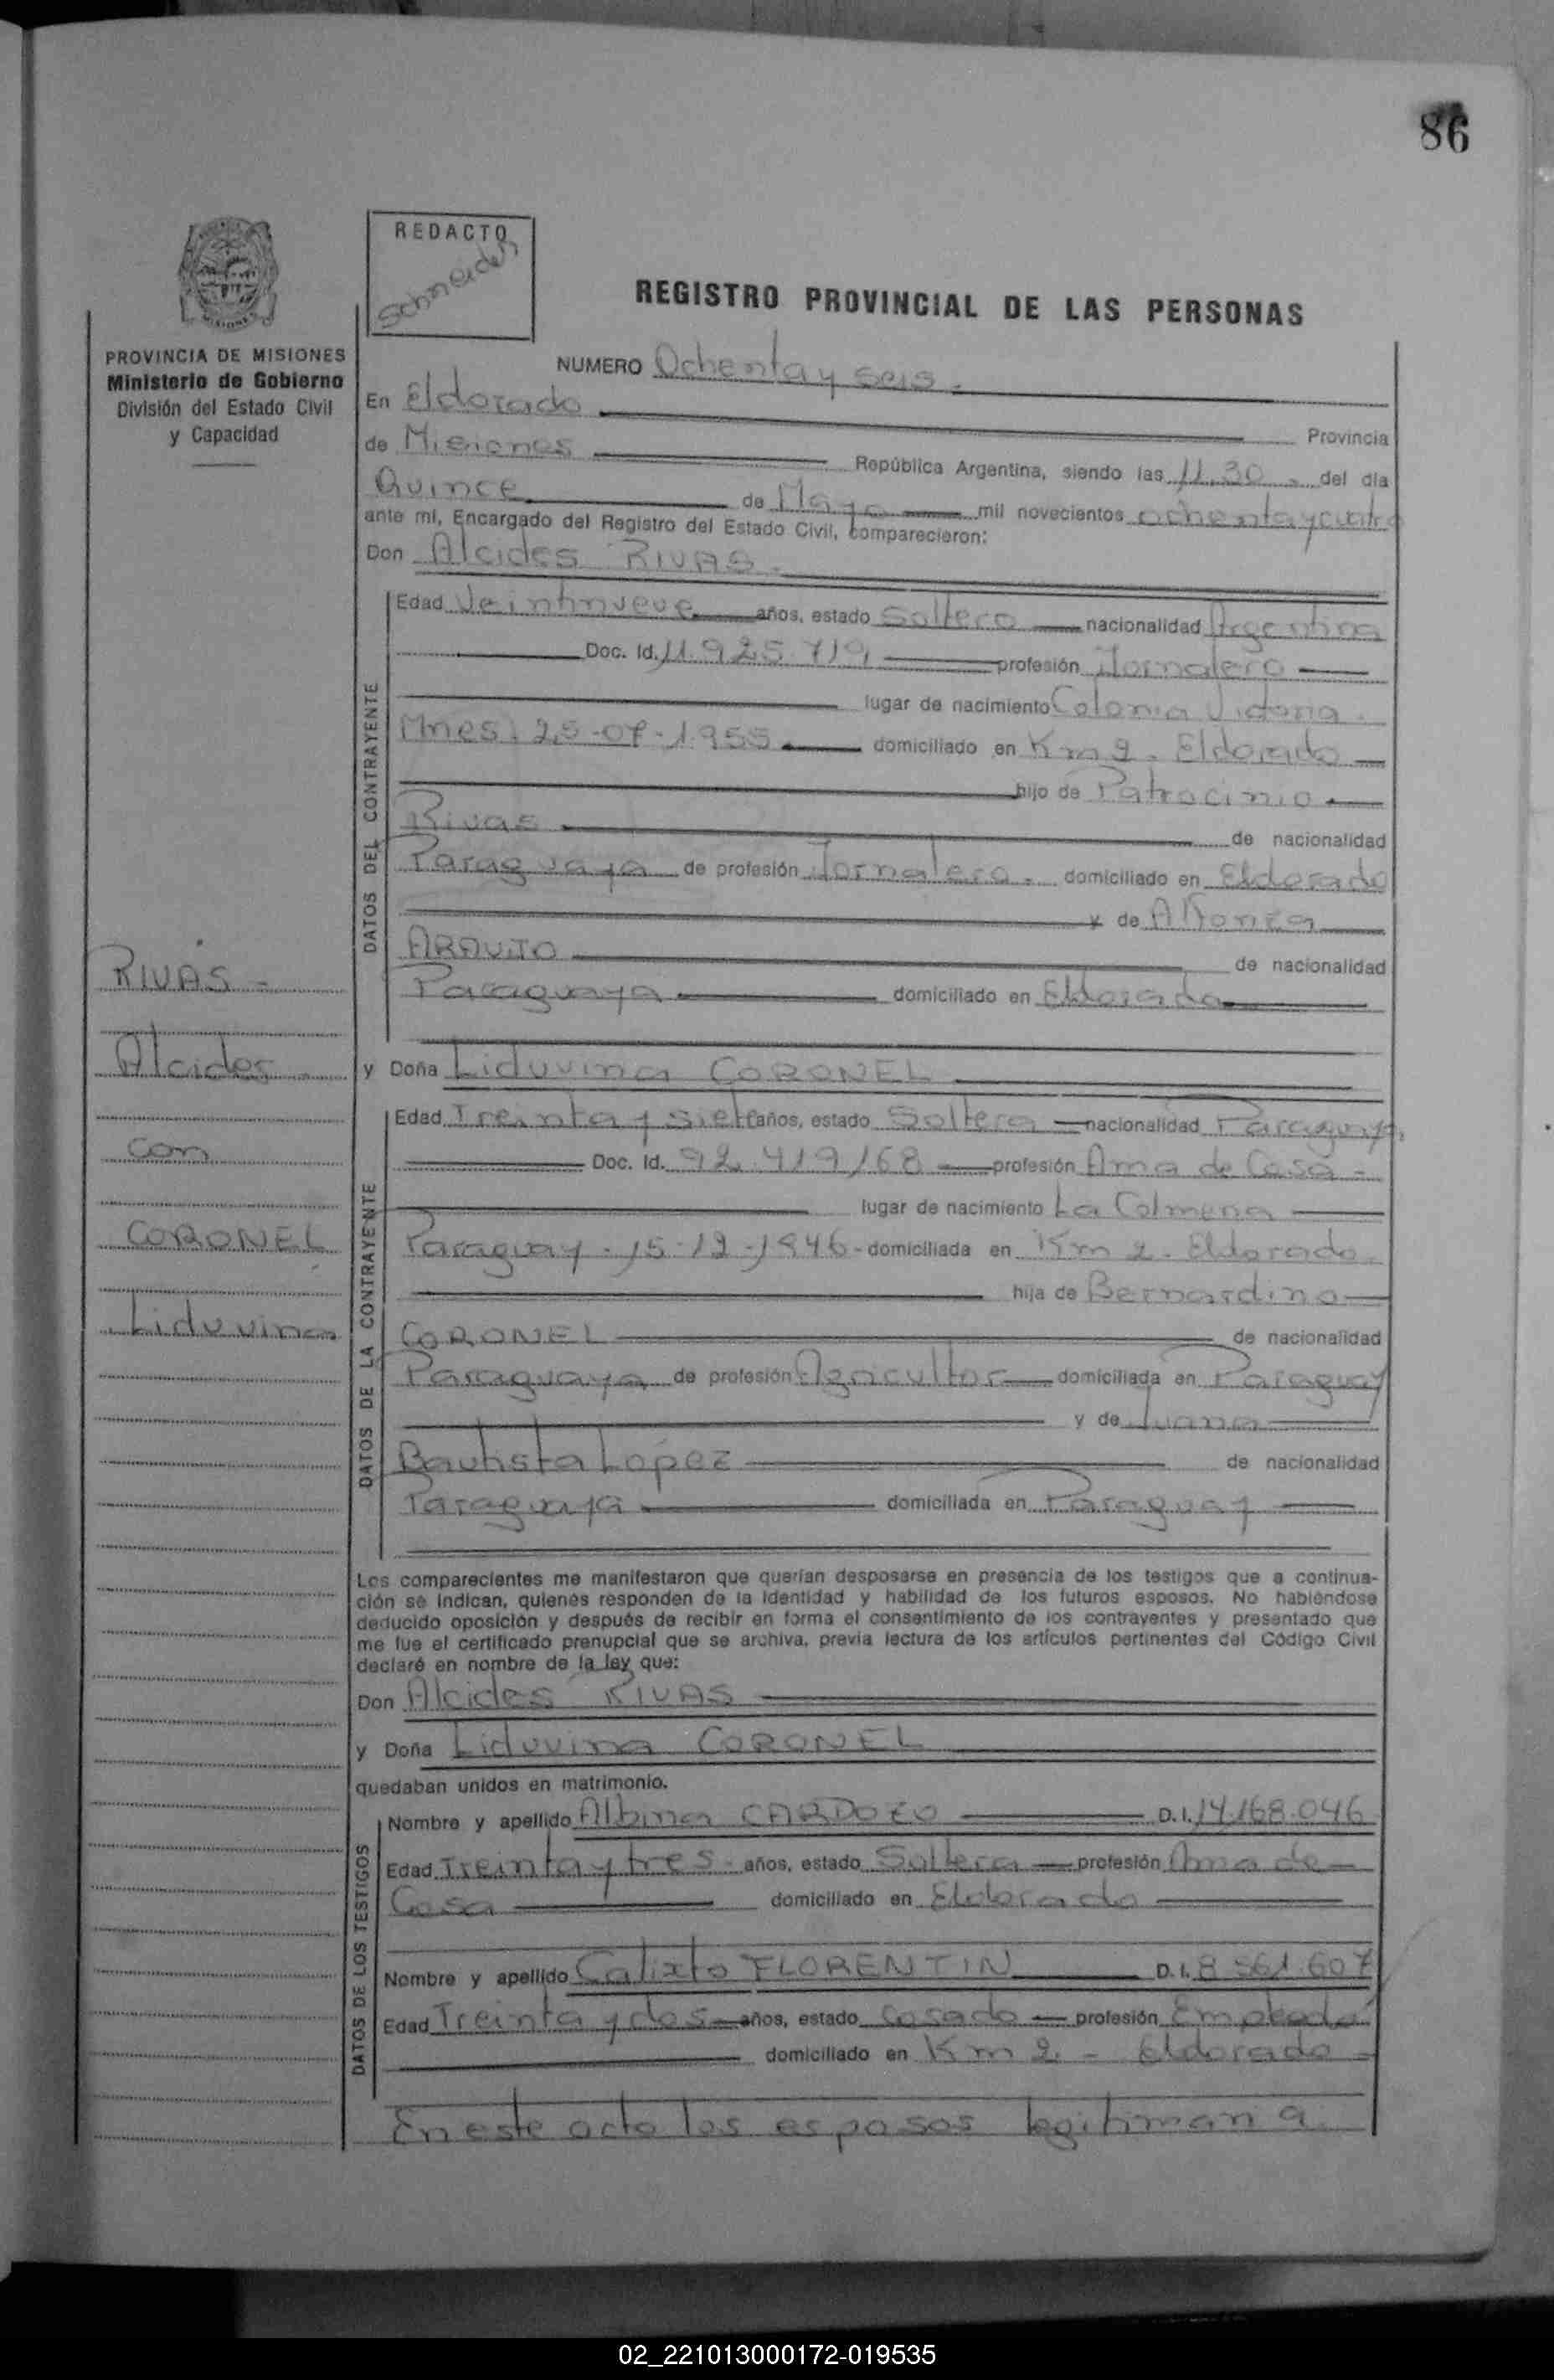 86
REDACTO
Schneider
REGISTRO PROVINCIAL DE LAS PERSONAS
PROVINCIA DE MISIONES
Ministerio de Gobierno
División del Estado Civil
y Capacidad
MISIONES
NUMERO Ochenta y seis.
En Eldorado Provincia
de Misiones República Argentina, siendo las 11.30 . del día
Quince de Mayo mil novecientos ochenta y cuatro
ante mí, Encargado del Registro del Estado Civil, comparecieron:
Don Alcides RIVAS.
DATOS DEL CONTRAYENTE
Edad Veintinueve años, estado Soltero nacionalidad Argentina
Doc. Id. 11.925.719 profesión Jornalero
lugar de nacimiento Colonia Victoria.
Mnes. 25-07-1955 domiciliado en Km 2. Eldorado
hijo de Patrocinio
Rivas de nacionalidad
Paraguaya de profesión Jornalero. domiciliado en Eldorado
y de
de nacionalidad
Paraguaya domiciliado en Eldorado
RIVAS -
Alcides
con
CORONEL
Liduvina
y Doña Liduvina CORONEL
DATOS DE LA CONTRAYENTE
Edad Treinta y siete años, estado Soltera nacionalidad Paraguaya
Doc. Id. 92.419168 profesión Ama de Casa -
lugar de nacimiento La Colmena
Paraguay. 15-12-1946 - domiciliada en Km 2. Eldorado.
hija de Bernardino
CORONEL de nacionalidad
Paraguaya de profesión Agricultor domiciliada en Paraguay
y de Juana
Bautista López de nacionalidad
Paraguaya domiciliada en Paraguay
Los comparecientes me manifestaron que querían desposarse en presencia de los testigos que a continua-
ción se indican, quienes responden de la identidad y habilidad de los futuros esposos. No habiéndose
deducido oposición y después de recibir en forma el consentimiento de los contrayentes y presentado que
me fue el certificado prenupcial que se archiva, previa lectura de los artículos pertinentes del Código Civil
declaré en nombre de la ley que:
Don Alcides RIVAS
y Doña Liduvina CORONEL
quedaban unidos en matrimonio.
DATOS DE LOS TESTIGOS
Nombre y apellido Albina CARDOZO D.I. 14.168.046
Edad Treinta y tres. años, estado Soltera profesión Ama de
Casa domiciliado en Eldorado
Nombre y apellido Calixto FLORENTIN D.I. 8 561.607
Edad Treinta y dos años, estado Casado profesión Empleado
domiciliado en Km 2 - Eldorado -
En este acto los esposos legitiman a
02_221013000172-019535